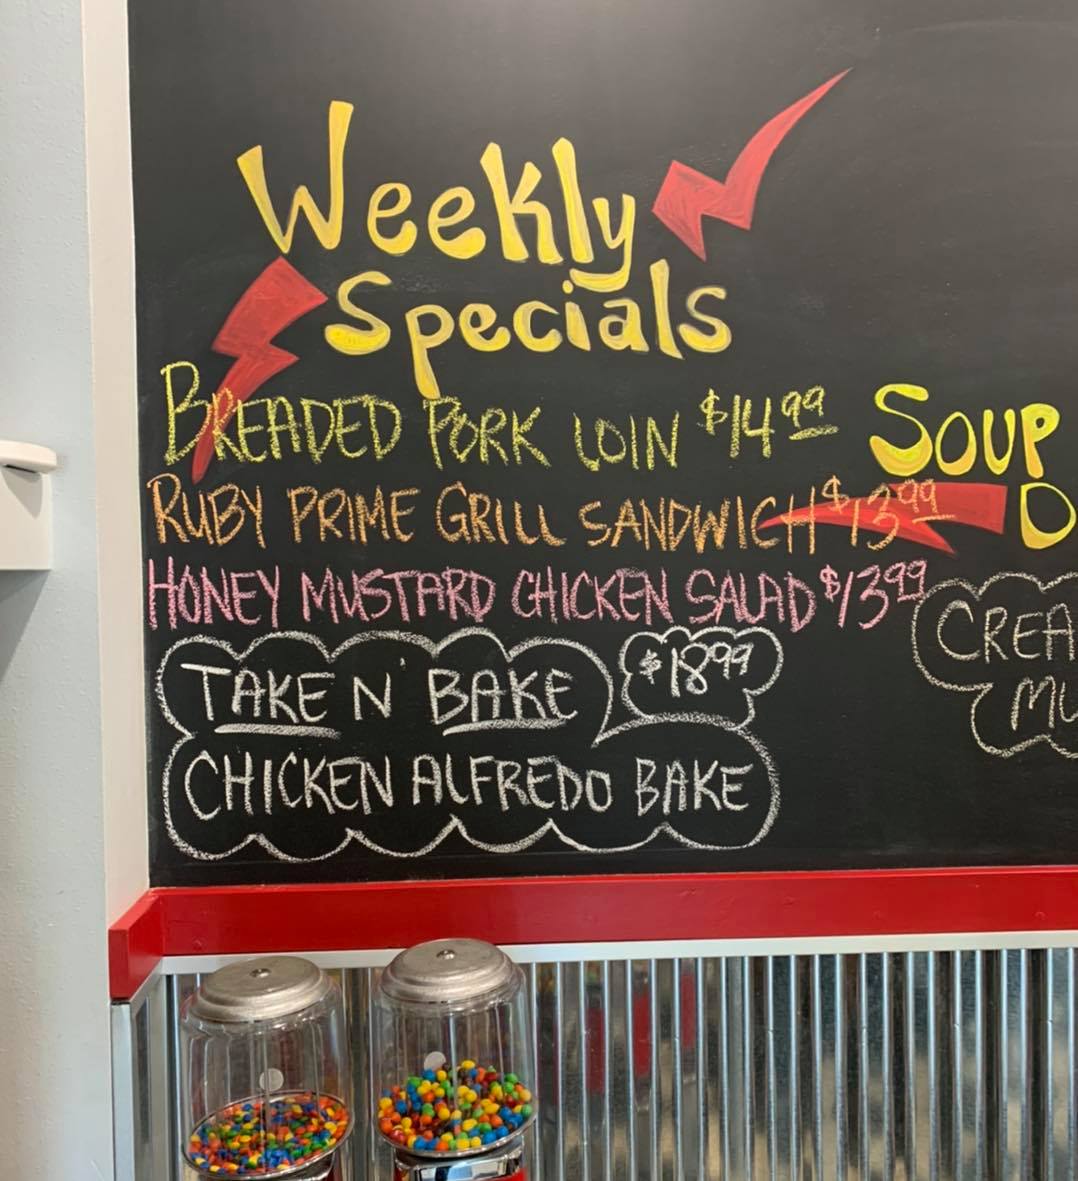 Weekly
Specials
BREADED PORK LOIN $14.99
RUBY PRIME GRILL SANDWICH $13.99
HONEY MUSTARD CHICKEN SALAD $13.99
TAKE N' BAKE $18.99
CHICKEN ALFREDO BAKE
SOUP